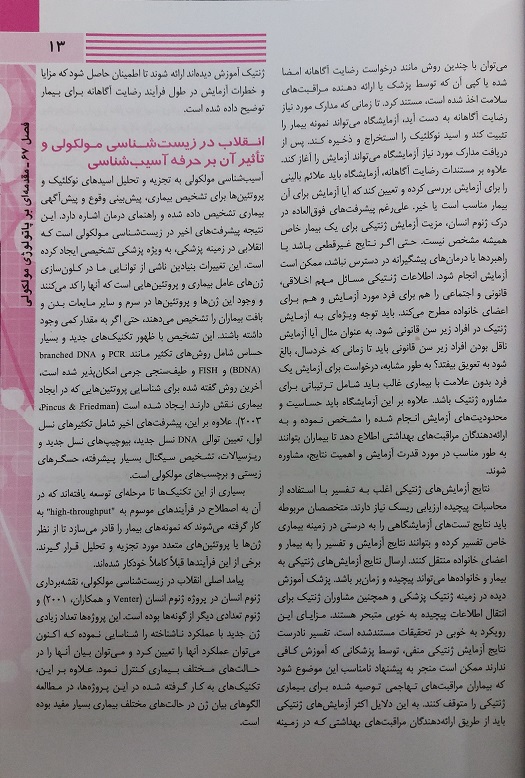 ۱۳
فصل ۶۷ - مقدمه‌ای بر پاتولوژی مولکولی
می‌توان با چندین روش مانند درخواست رضایت آگاهانه امضا
شده یا کپی آن که توسط پزشک یا ارائه دهنده مراقبت‌های
سلامت اخذ شده است، مستند کرد. تا زمانی که مدارک مورد نیاز
رضایت آگاهانه به دست آید، آزمایشگاه می‌تواند نمونه بیمار را
تثبیت کند و اسید نوکلئیک را استخراج و ذخیره کند. پس از
دریافت مدارک مورد نیاز آزمایشگاه می‌تواند آزمایش را آغاز کند.
علاوه بر مستندات رضایت آگاهانه، آزمایشگاه باید علائم بالینی
را برای آزمایش بررسی کرده و تعیین کند که آیا آزمایش برای آن
بیمار مناسب است یا خیر. علی‌رغم پیشرفت‌های فوق‌العاده در
درک ژنوم انسان، مزیت آزمایش ژنتیکی برای یک بیمار خاص
همیشه مشخص نیست. حتی اگر نتایج غیرقطعی باشد یا
راهبردها یا درمان‌های پیشگیرانه در دسترس نباشد، ممکن است
آزمایش انجام شود. اطلاعات ژنتیکی مسائل مهم اخلاقی،
قانونی و اجتماعی را هم برای فرد مورد آزمایش و هم برای
اعضای خانواده مطرح می‌کند. باید توجه ویژه‌ای به آزمایش
ژنتیک در افراد زیر سن قانونی شود. به عنوان مثال آیا آزمایش
ناقل بودن افراد زیر سن قانونی باید تا زمانی که خردسال، بالغ
شود به تعویق بیفتد؟ به طور مشابه، درخواست برای آزمایش یک
فرد بدون علامت با بیماری غالب باید شامل ترتیباتی برای
مشاوره ژنتیک باشد. علاوه بر این آزمایشگاه باید حساسیت و
محدودیت‌های آزمایش انجام شده را مشخص نموده و به
ارائه‌دهندگان مراقبت‌های بهداشتی اطلاع دهد تا بیماران بتوانند
به طور مناسب در مورد قدرت آزمایش و اهمیت نتایج، مشاوره
شوند.
نتایج آزمایش‌های ژنتیکی اغلب به تفسیر با استفاده از
محاسبات پیچیده ارزیابی ریسک نیاز دارند. متخصصان مربوطه
باید نتایج تست‌های آزمایشگاهی را به درستی در زمینه بیماری
خاص تفسیر کرده و بتوانند نتایج آزمایش و تفسیر را به بیمار و
اعضای خانواده منتقل کنند. ارسال نتایج آزمایش‌های ژنتیکی به
بیمار و خانواده‌ها می‌تواند پیچیده و زمان‌بر باشد. پزشک آموزش
دیده در زمینه ژنتیک پزشکی و همچنین مشاوران ژنتیک برای
انتقال اطلاعات پیچیده به خوبی متبحر هستند. مزایای این
رویکرد به خوبی در تحقیقات مستندشده است. تفسیر نادرست
نتایج آزمایش ژنتیکی منفی، توسط پزشکانی که آموزش کافی
ندارند ممکن است منجر به پیشنهاد نامناسب این موضوع شود
که بیماران مراقبت‌های تهاجمی توصیه شده برای بیماری
ژنتیکی را متوقف کنند. به این دلایل اکثر آزمایش‌های ژنتیکی
باید از طریق ارائه‌دهندگان مراقبت‌های بهداشتی که در زمینه
ژنتیک آموزش دیده‌اند ارائه شوند تا اطمینان حاصل شود که مزایا
و خطرات آزمایش در طول فرآیند رضایت آگاهانه برای بیمار
توضیح داده شده است.
انقلاب در زیست‌شناسی مولکولی و
تأثیر آن بر حرفه آسیب‌شناسی
آسیب‌شناسی مولکولی به تجزیه و تحلیل اسیدهای نوکلئیک و
پروتئین‌ها برای تشخیص بیماری، پیش‌بینی وقوع و پیش‌آگهی
بیماری تشخیص داده شده و راهنمای درمان اشاره دارد. این
نتیجه پیشرفت‌های اخیر در زیست‌شناسی مولکولی است که
انقلابی در زمینه پزشکی، به ویژه پزشکی تشخیصی ایجاد کرده
است. این تغییرات بنیادین ناشی از توانایی ما در کلون‌سازی
ژن‌های عامل بیماری و پروتئین‌هایی است که آنها را کد می‌کنند
و وجود این ژن‌ها و پروتئین‌ها در سرم و سایر مایعات بدن و
بافت بیماران را تشخیص می‌دهند، حتی اگر به مقدار کمی وجود
داشته باشند. این تشخیص با ظهور تکنیک‌های جدید و بسیار
حساس شامل روش‌های تکثیر مانند PCR و branched DNA
(BDNA) و FISH و طیف‌سنجی جرمی امکان‌پذیر شده است،
آخرین روش گفته شده برای شناسایی پروتئین‌هایی که در ایجاد
بیماری نقش دارند ایجاد شده است (Pincus & Friedman،
۲۰۰۳). علاوه بر این، پیشرفت‌های اخیر شامل تکثیرهای نسل
اول، تعیین توالی DNA نسل جدید، بیوچیپ‌های نسل جدید و
ریزسیالات، تشخیص سیگنال بسیار پیشرفته، حسگرهای
زیستی و برچسب‌های مولکولی است.
بسیاری از این تکنیک‌ها تا مرحله‌ای توسعه یافته‌اند که در
آن به اصطلاح در فرآیندهای موسوم به "high-throughput" به
کار گرفته می‌شوند که نمونه‌های بیمار را قادر می‌سازد تا از نظر
ژن‌ها یا پروتئین‌های متعدد مورد تجزیه و تحلیل قرار گیرند.
برخی از این فرآیندها قبلاً کاملاً خودکار شده‌اند.
پیامد اصلی انقلاب در زیست‌شناسی مولکولی، نقشه‌برداری
ژنوم انسان در پروژه ژنوم انسان (Venter و همکاران، ۲۰۰۱) و
ژنوم تعدادی دیگر از گونه‌ها بوده است. این پروژه‌ها تعداد زیادی
ژن جدید با عملکرد ناشناخته را شناسایی نموده که اکنون
می‌توان عملکرد آنها را تعیین کرد و می‌توان بیان آنها را در
حالت‌های مختلف بیماری کنترل نمود. علاوه بر این،
تکنیک‌های به کار گرفته شده در این پروژه‌ها، در مطالعه
الگوهای بیان ژن در حالت‌های مختلف بیماری بسیار مفید بوده
است.